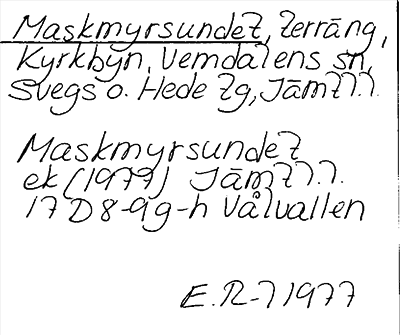 Maskmyrsundet, terräng,
Kyrkbyn, Vemdalens sn,
Svegs o. Hede tg, Jämtl.l.
Maskmyrsundet
ek (1977) Jämtl.l.
17 D 8-9 g-h Vålvallen
E.R-7 1977